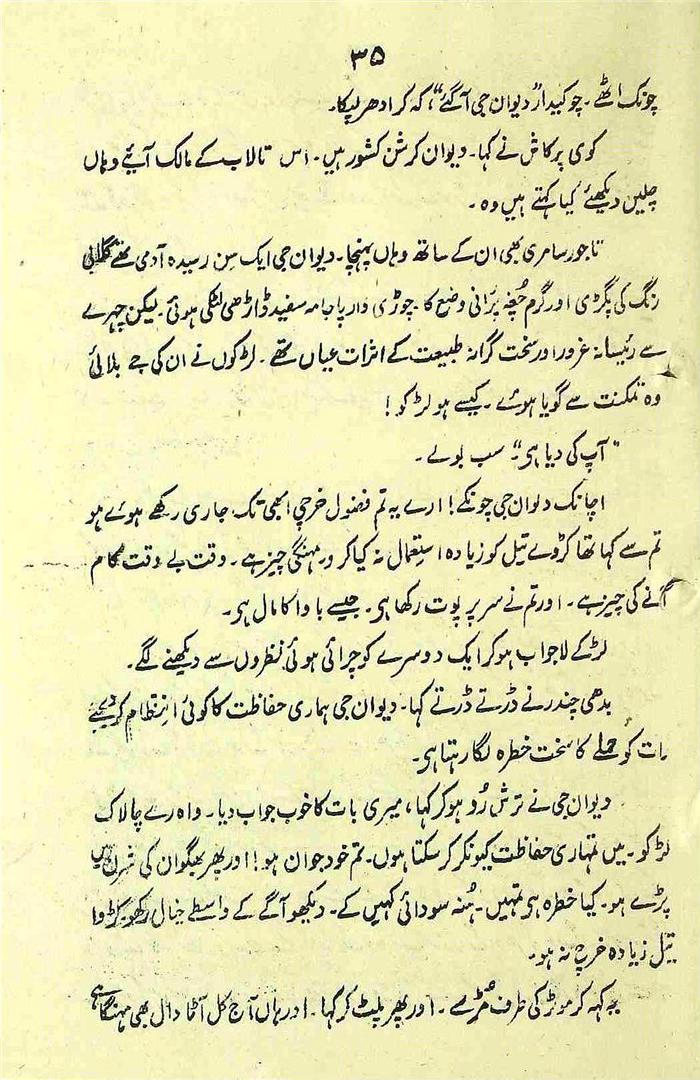 ۳۵
چونک اٹھے۔ چوکیدار "دیوان جی آ گئے"، کہہ کر ادھر لپکا۔
کوی پرکاش نے کہا۔ دیوان کرشن کشور ہیں۔ اس تالاب کے مالک آیئے وہاں
چلیں دیکھئے کیا کہتے ہیں وہ۔
تاجور سامری بھی ان کے ساتھ وہاں پہنچا۔ دیوان جی ایک سِن رسیدہ آدمی تھے گلابی
رنگ کی پگڑی اور گرم چُغہ پُرانی وضع کا۔ چوڑی دار پاجامہ سفید ڈاڑھی لٹکی ہوئی۔ لیکن چہرے
سے رئیسانہ غرور اور سخت گرانہ طبیعت کے اثرات عیاں تھے۔ لڑکوں نے ان کی جے بلائی
وہ تمکنت سے گویا ہوئے۔ کیسے ہو لڑکو!
"آپ کی دیا ہی"۔ سب بولے۔
اچانک دیوان جی چونکے! ارے یہ تم فضول خرچی ابھی تک جاری رکھے ہوئے ہو
تم سے کہا تھا کڑوے تیل کو زیادہ استعمال نہ کیا کرو۔ مہنگی چیز ہے۔ وقت بے وقت کام
آنے کی چیز ہے۔ اور تم نے سر پر پوت رکھا ہی۔ جیسے باوا کا مال ہی۔
لڑکے لاجواب ہو کر ایک دوسرے کو چرائی ہوئی نظروں سے دیکھنے لگے۔
بدھی چندر نے ڈرتے ڈرتے کہا۔ دیوان جی ہماری حفاظت کا کوئی انتظام کر دیجئے
رات کو حملے کا سخت خطرہ لگا رہتا ہی۔
دیوان جی نے ترش رُو ہو کر کہا، میری بات کا خوب جواب دیا۔ واہ رے چالاک
لڑکو۔ میں تمہاری حفاظت کیونکر کر سکتا ہوں۔ تم خود جوان ہو! اور پھر بھگوان کی شرن میں
پڑے ہو۔ کیا خطرہ ہی تمہیں۔ ہُنہ سودائی کہیں کے۔ دیکھو آگے کے واسطے خیال رکھو۔ کڑوا
تیل زیادہ خرچ نہ ہو۔
یہ کہہ کر موڑ کی طرف مُڑے۔ اور پھر پلٹ کر کہا۔ اور ہاں آج کل آٹا دال بھی مہنگا ہے